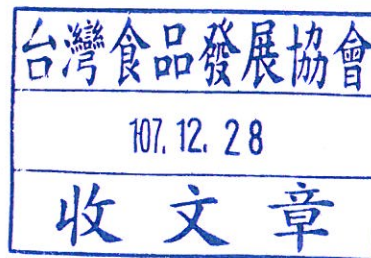 台灣食品發展協會
107.12.28
收文章